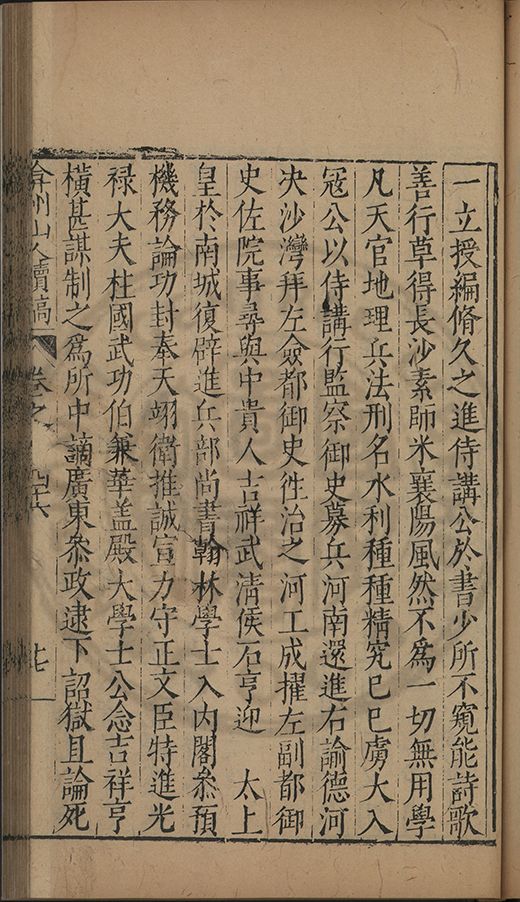 一立授編脩久之進侍講公於書少所不窺能詩歌
善行草得長沙素師米襄陽風然不為一切無用學
凡天官地理兵法刑名水利種種精究已巳虜大入
寇公以侍講行監察御史募兵河南還進右諭德河
決沙灣拜左僉都御史徃治之河工成擢左副都御
史佐院事尋與中貴人吉祥武清侯石亨迎　太上
皇於南城復辟進兵部尚書翰林學士入內閣叅預
機務論功封奉天翊衛推誠宣力守正文臣特進光
祿大夫柱國武功伯兼華盖殿大學士公念吉祥亨
橫甚謀制之為所中謫廣東叅政逮下詔獄且論死
弇州山人續稿 卷之